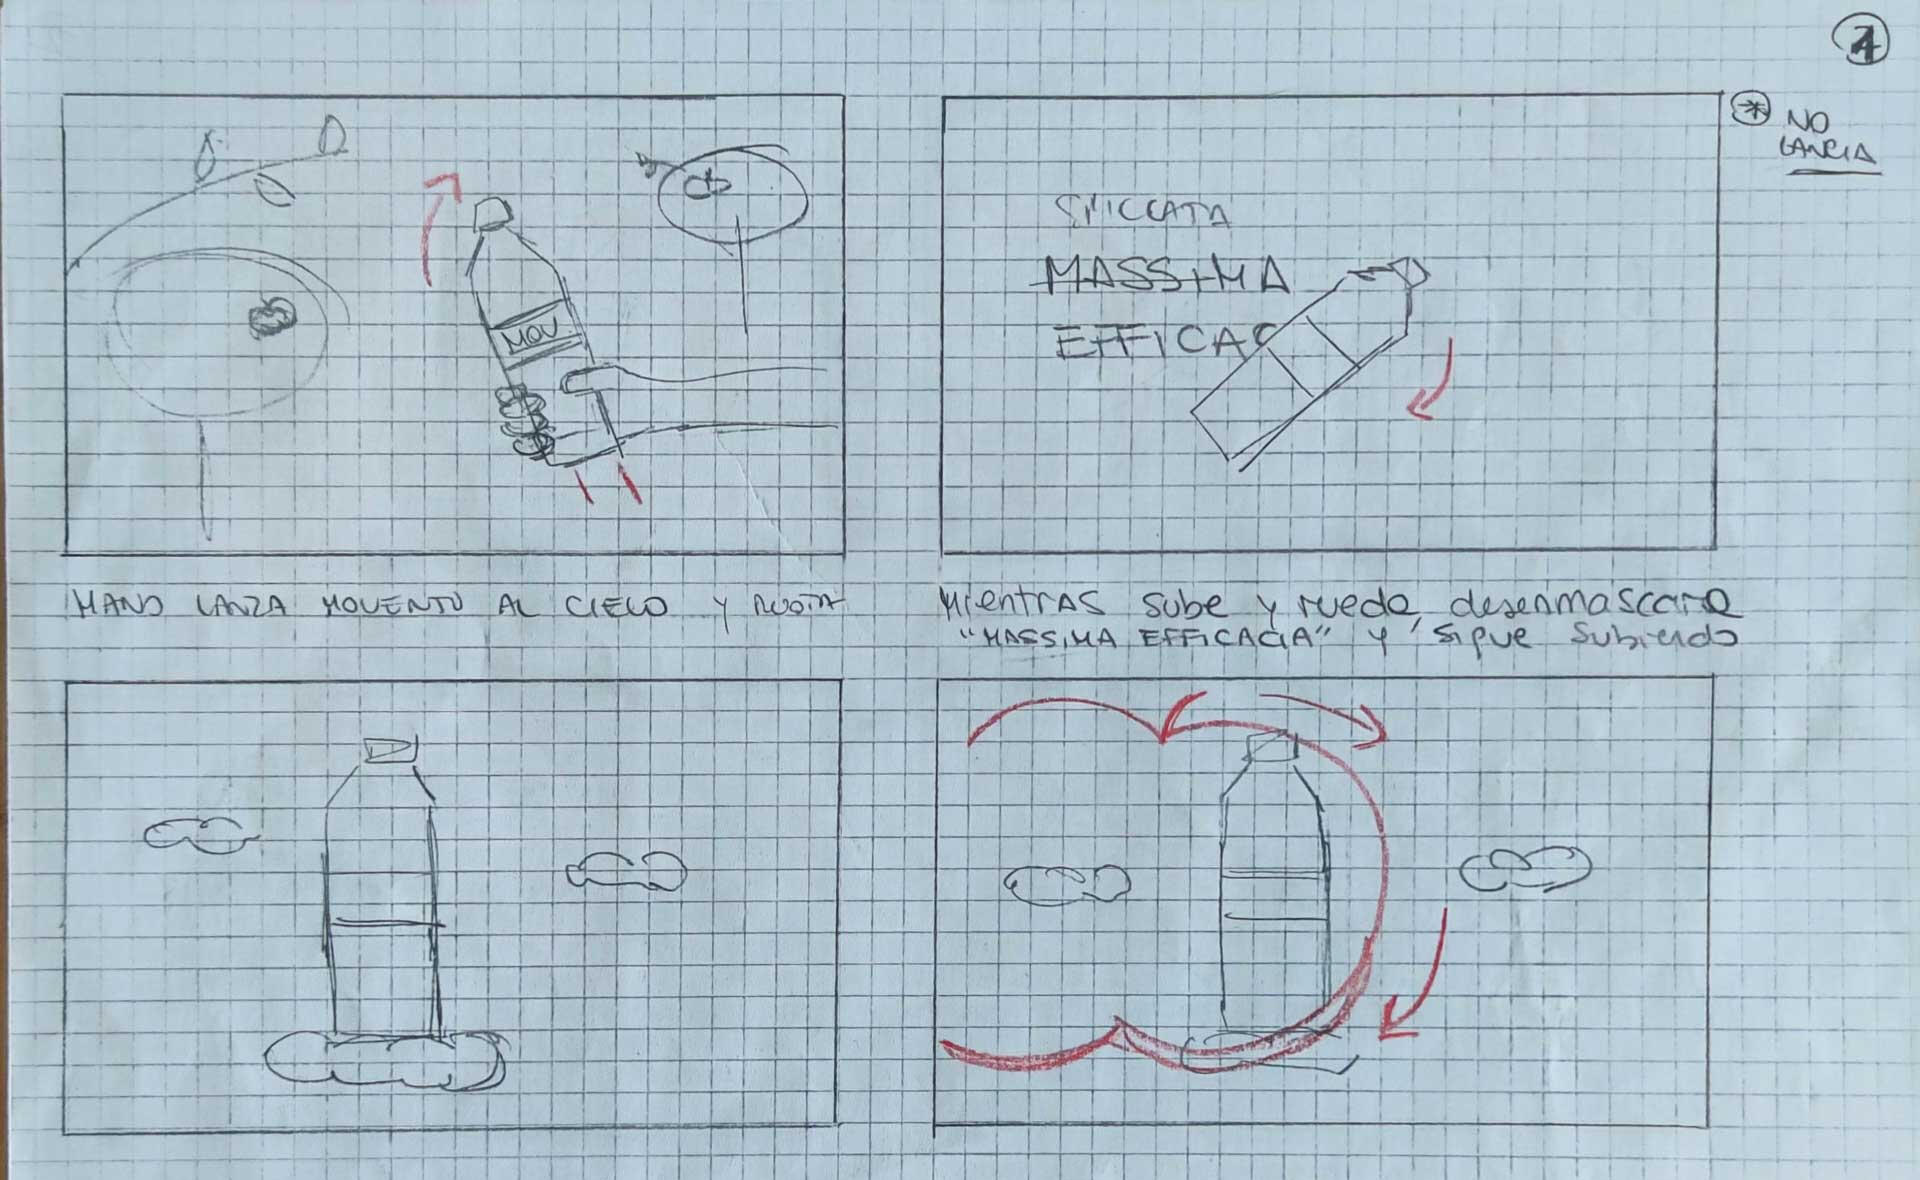 * NO
LANCIA
MOV.
SPICCATA
MASSIMA
EFFICAC
MANO LANZA MOVENTO AL CIELO Y RUOTA
Mientras sube y rueda, desenmascara
"MASSIMA EFFICACIA" y sigue subiendo